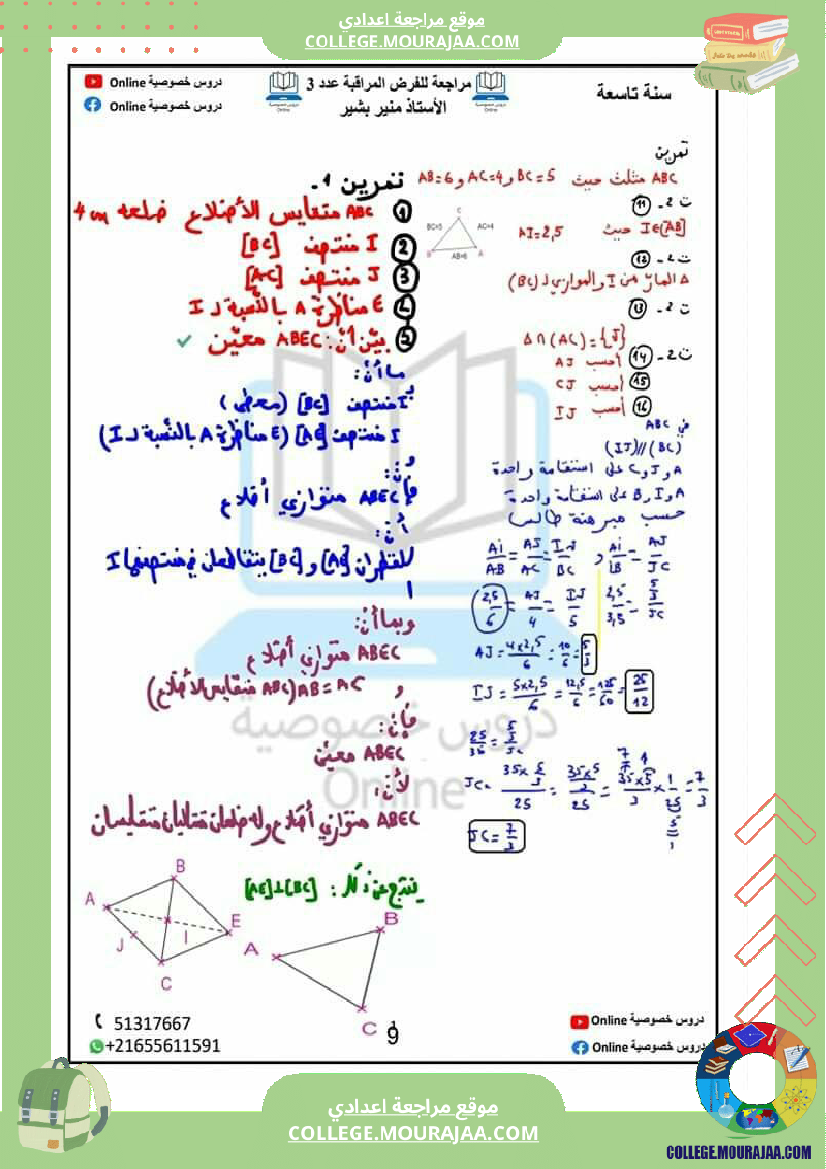 موقع مراجعة اعدادي
COLLEGE.MOURAJAA.COM
سنة تاسعة
مراجعة للفرض المراقبة عدد 3
الأستاذ منير بشير
دروس خصوصية Online
دروس خصوصية Online
دروس خصوصية
Online
دروس خصوصية
Online
تمرين
ABC مثلث حيث BC=5 و AC=4 و AB=6
ت - 2 (11)
I∈[AB] حيث AI=2,5
C
BC=5
AC=4
B
A
AB=6
ت - 2 (12)
Δ المار من I والموازي لـ (BC)
ت - 2 (13)
Δ∩(AC)={J}
ت - 2 (14) أحسب AJ
(15) أحسب CJ
(16) أحسب IJ
في ABC
(IJ)//(BC)
A و J و C على استقامة واحدة
A و I و B على استقامة واحدة
حسب مبرهنة طالس
AI/AB = AJ/AC = IJ/BC و AI/IB = AJ/JC
2,5/6 = AJ/4 = IJ/5
2,5/3,5 = 5/3/JC
AJ = 4×2,5/6 = 10/6 = 5/3
IJ = 5×2,5/6 = 12,5/6 = 125/60 = 25/12
25/35 = 5/3/JC
JC = 35×5/3/25 = 35×5/3/25 = 35×5/3 × 1/25 = 7/3
JC = 7/3
تمرين 1 -
(1) ABC متقايس الأضلاع ضلعه 4 cm
(2) I منتصف [BC]
(3) J منتصف [AC]
(4) E مناظرة A بالنسبة لـ I
(5) بيّن أنّ: ABEC معيّن
بما أنّ:
I منتصف [BC] (معطى)
I منتصف [AE] (E مناظرة A بالنسبة لـ I)
فإنّ:
ABEC متوازي أضلاع
لأنّ:
القطران [AE] و [BC] يتقاطعان في منتصفهما I
وبما أنّ:
ABEC متوازي أضلاع
و AB=AC (ABC متقايس الأضلاع)
فإنّ:
ABEC معيّن
لأنّ:
ABEC متوازي أضلاع وله ضلعان متتاليان متقايسان
نستنتج من ذلك : [AE]⊥[BC]
A
B
E
J
I
C
A
B
C
دروس خصوصية
Online
51317667
+21655611591
9
دروس خصوصية Online
دروس خصوصية Online
موقع مراجعة اعدادي
COLLEGE.MOURAJAA.COM
COLLEGE.MOURAJAA.COM